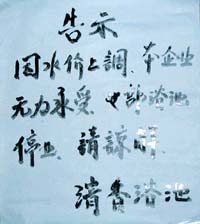 告示
因水价上調、本企业
无力承受、女部浴池
停业、請諒解、
清香浴池